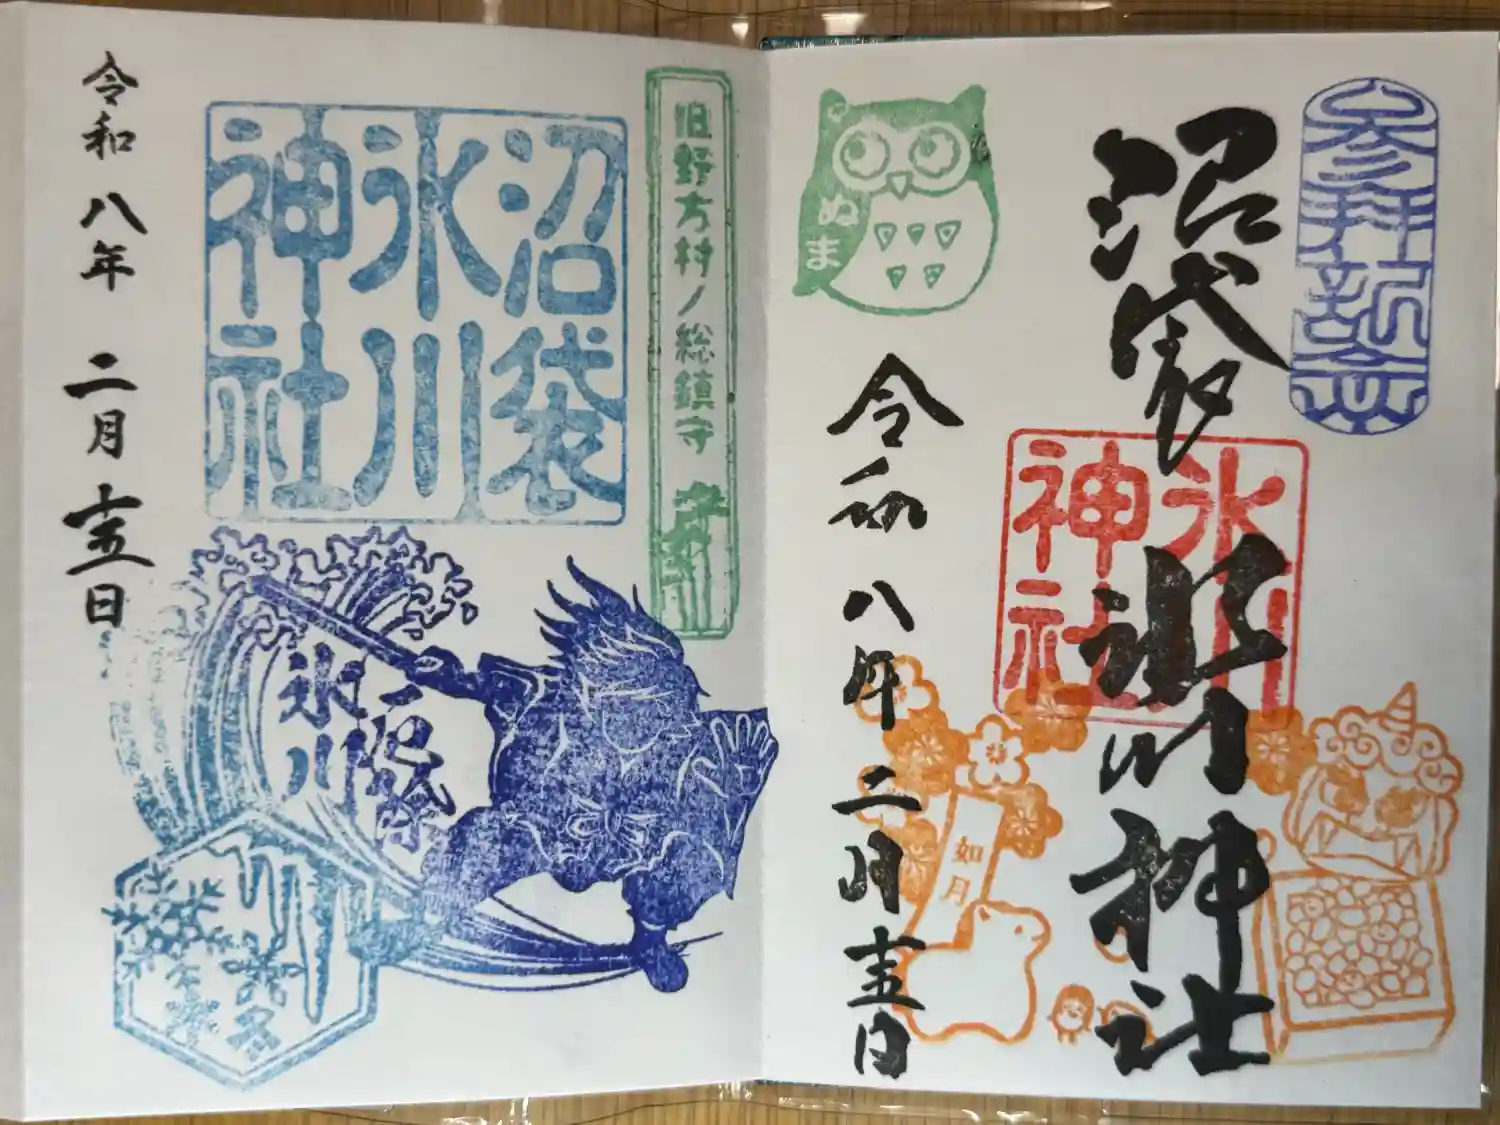 参拝記念
沼袋
氷川神社
氷川
神社
ぬま
令和八年二月十五日
如月
旧野方村ノ総鎮守
沼袋
氷川
神社
一厄除
氷川
令和八年二月十五日